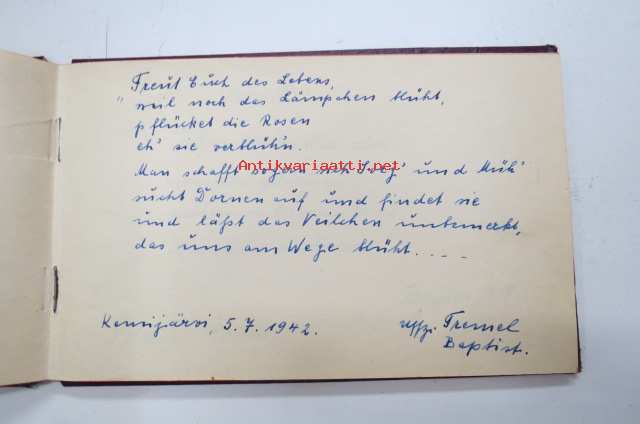 Freut Euch des Lebens,
" weil noch das Lämpchen blüht,
pflücket die Rosen
eh' sie verblüh'n.
Man schafft so gern sich Sorg' und Müh'
Antikvariaatti.net
sucht Dornen auf und findet sie
und läßt das Veilchen unbemerkt,
das uns am Wege blüht....
Kemijärvi, 5.7.1942.
Uffz. Tremel
Baptist.